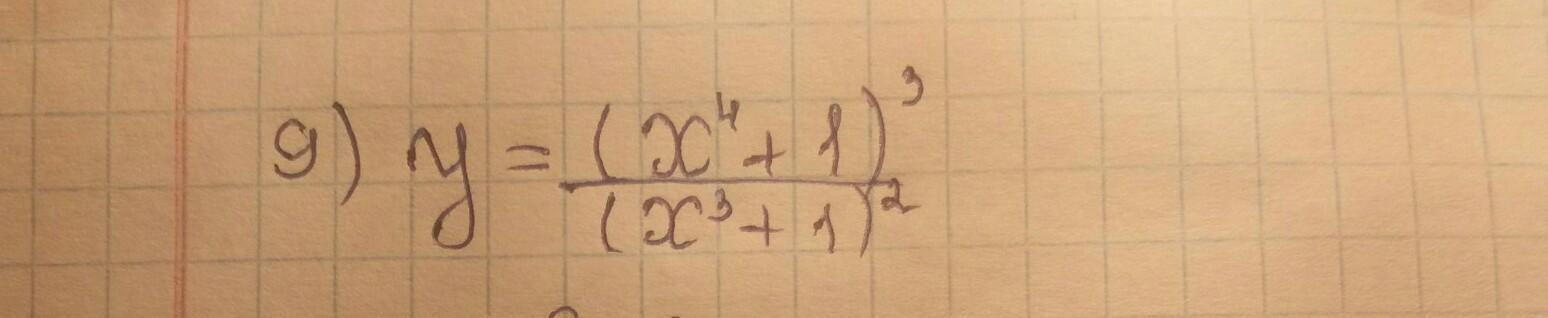 9) y = (x⁴ + 1)³ / (x³ + 1)²